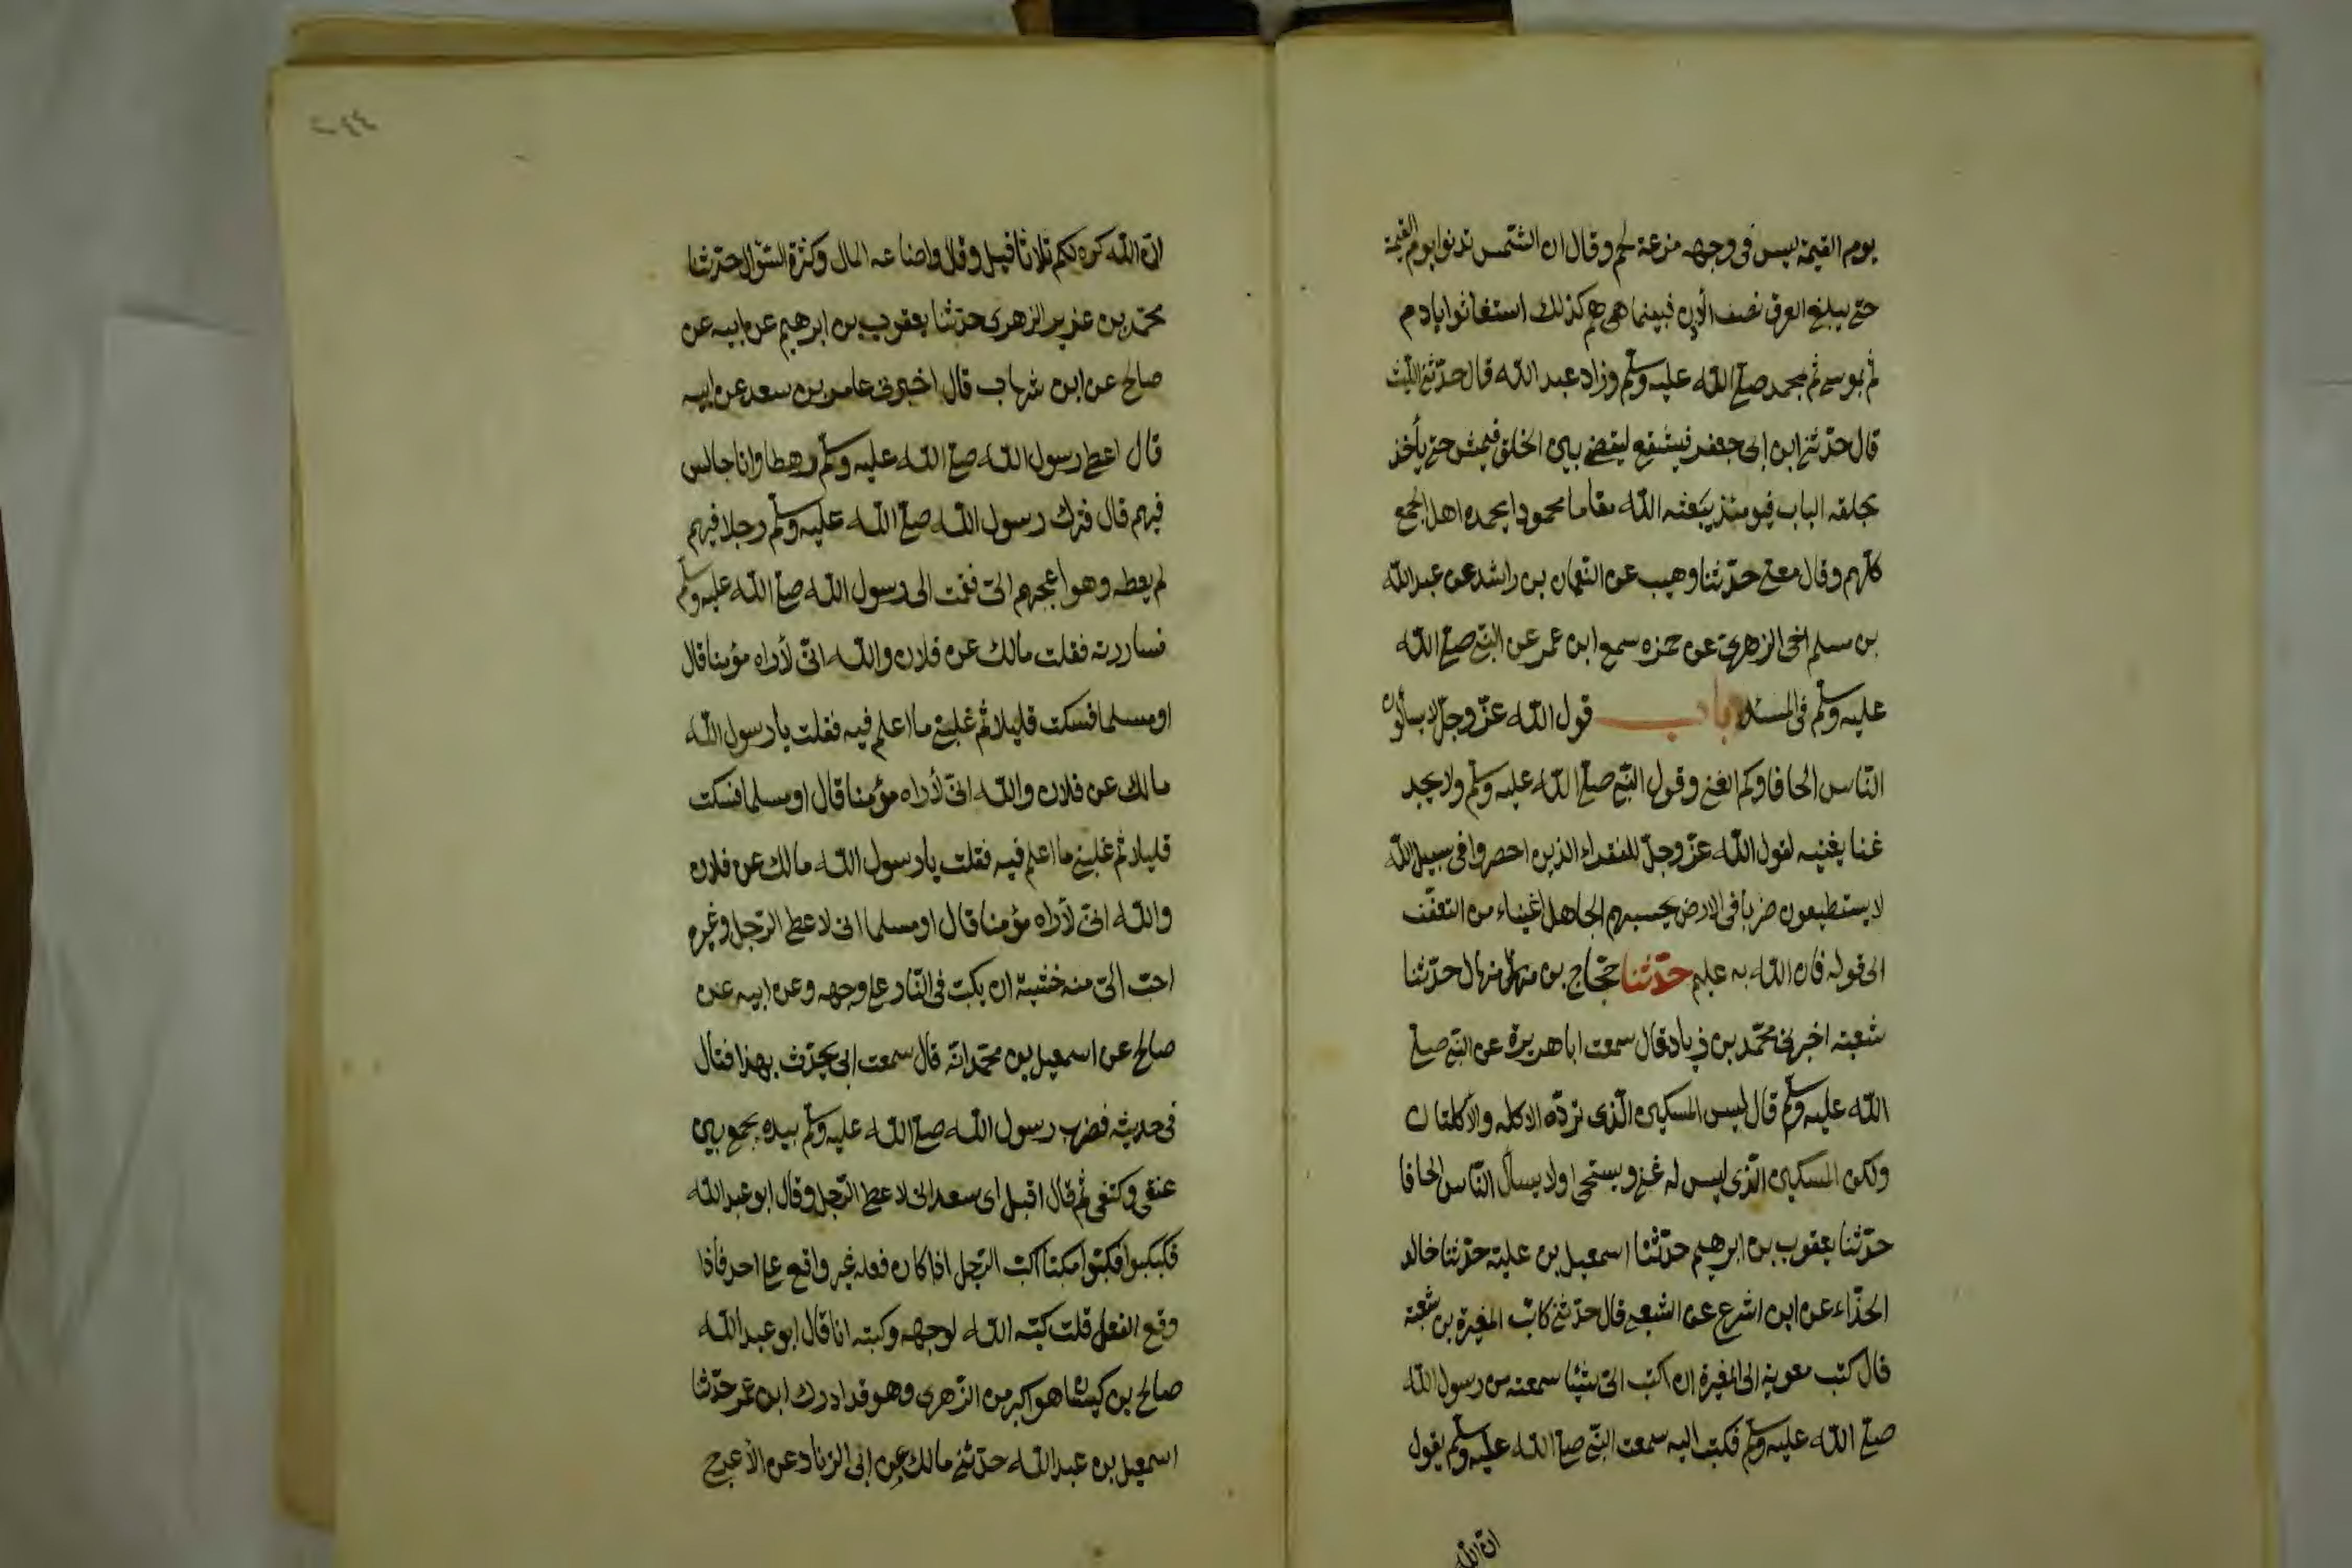 يوم القيمة ليس فى وجهه مزعة لحم وقال ان الشمس تدنوا يوم القيمة
حتى يبلغ العرق نصف الأذن فبينما هم كذلك استغاثوا بادم
ثم بموسى ثم بمحمد صلى الله عليه وسلم وزاد عبد الله قال حدثنى الليث
قال حدثنى ابن ابى جعفر فيشفع ليقضى بين الخلق فيمشى حتى يأخذ
بحلقه الباب فيومئذ يبعثه الله مقاما محمودا يحمده اهل الجمع
كلهم وقال معلى حدثنا وهيب عن النعمان بن راشد عن عبد الله
بن مسلم اخى الزهرى عن حمزه سمع ابن عمر عن النبى صلى الله
عليه وسلم فى المسئلة باب قول الله عز وجل لا يسألون
الناس الحافا وكم الغنى وقول النبى صلى الله عليه وسلم ولا يجد
غنا يغنيه لقول الله عز وجل للفقراء الذين احصروا فى سبيل الله
لا يستطيعون ضربا فى الارض يحسبهم الجاهل اغنياء من التعفف
الى قوله فان الله به عليم حدثنا حجاج بن منهال حدثنا
شعبة اخبرنى محمد بن زياد قال سمعت ابا هريرة عن النبى صلى
الله عليه وسلم قال ليس المسكين الذى تردّه الاكله والأكلتان
ولكن المسكين الذى ليس له غنى ويستحى او لا يسأل الناس الحافا
حدثنا يعقوب بن ابرهيم حدثنا اسمعيل بن علية حدثنا خالد
الحذاء عن ابن اشوع عن الشعبى قال حدثنى كاتب المغيرة بن شعبة
قال كتب معوية الى المغيرة ان اكتب الىّ شيئا سمعته من رسول الله
صلى الله عليه وسلم فكتب اليه سمعت النبى صلى الله عليه وسلم يقول
ان الله
٢٤٤
ان الله كره لكم ثلاثا قيل وقال واضاعه المال وكثرة السؤال حدثنا
محمد بن غرير الزهرى حدثنا يعقوب بن ابرهيم عن ابيه عن
صالح عن ابن شهاب قال اخبرنى عامر بن سعد عن ابيه
قال اعطى رسول الله صلى الله عليه وسلم رهطا وانا جالس
فيهم قال فترك رسول الله صلى الله عليه وسلم رجلا فيهم
لم يعطه وهو اعجبهم الىّ فقمت الى رسول الله صلى الله عليه وسلم
فساررته فقلت مالك عن فلان والله انى لأراه مؤمنا قال
او مسلما فسكت قليلا ثم غلبنى ما اعلم فيه فقلت يا رسول الله
مالك عن فلان والله انى لأراه مؤمنا قال او مسلما فسكت
قليلا ثم غلبنى ما اعلم فيه فقلت يا رسول الله مالك عن فلان
والله انى لأراه مؤمنا قال او مسلما انى لاعطى الرجل وغيره
احب الىّ منه خشية ان يكب فى النار على وجهه وعن ابيه عن
صالح عن اسمعيل بن محمد انه قال سمعت ابى يحدث بهذا فقال
فى حديثه فضرب رسول الله صلى الله عليه وسلم بيده بجمع بين
عنقى وكتفى ثم قال اقبل اى سعد انى لاعطى الرجل وقال ابو عبد الله
فكبكبوا فكبوا مكبا اكب الرجل اذا كان فعله غير واقع على احد فاذا
وقع الفعل قلت كبّه الله لوجهه وكببته انا قال ابو عبد الله
صالح بن كيسان هو اكبر من الزهرى وهو قد ادرك ابن عمر حدثنا
اسمعيل بن عبد الله حدثنى مالك عن ابى الزناد عن الأعرج